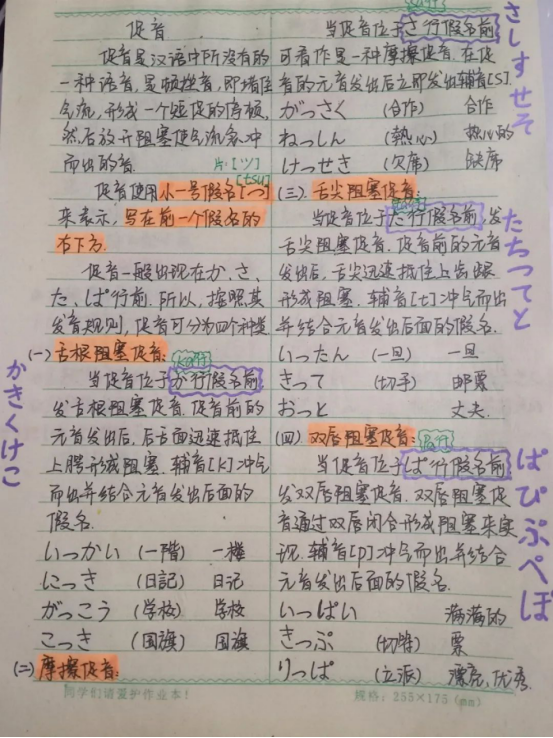 促音
促音是汉语中所没有的
一种语音,是顿挫音,即堵住
气流,形成一个短促的停顿,
然后放开阻塞使气流急冲
而出的音.
片:[ツ]
[tsu]
促音使用小一号假名[っ]
来表示,写在前一个假名的
右下方.
促音一般出现在か、さ、
た、ぱ行前.所以,按照其
发音规则,促音可分为四个种类
(一)舌根阻塞促音:
か行
当促音位于か行假名前,
发舌根阻塞促音.促音前的
元音发出后,后舌面迅速抵住
上腭形成阻塞.辅音[k]冲气
而出并结合元音发出后面的
假名.
いっかい (一階) 一楼
にっき (日記) 日记
がっこう (学校) 学校
こっき (国旗) 国旗
(二)摩擦促音:
かきくけこ
同学们请爱护作业本!
当促音位于さ行假名前
可看作是一种摩擦促音.在促
音的元音发出后立即发出辅音[s].
がっさく (合作) 合作
ねっしん (熱心) 热心的
けっせき (欠席) 缺席
(三).舌尖阻塞促音:
当促音位于た行假名前,发
舌尖阻塞促音.促音前的元音
发出后,舌尖迅速抵住上齿龈
形成阻塞.辅音[t]冲气而出
并结合元音发出后面的假名.
いったん (一旦) 一旦
きって (切手) 邮票
おっと 丈夫.
(四)双唇阻塞促音:
当促音位于ぱ行假名前
发双唇阻塞促音.双唇阻塞促
音通过双唇闭合形成阻塞来实
现.辅音[p]冲气而出并结合
元音发出后面的假名.
いっぱい 满满的
きっぷ 票
りっぱ (立派) 漂亮,优秀.
规格:255×175(mm)
さしすせそ
たちつてと
ぱぴぷぺぽ